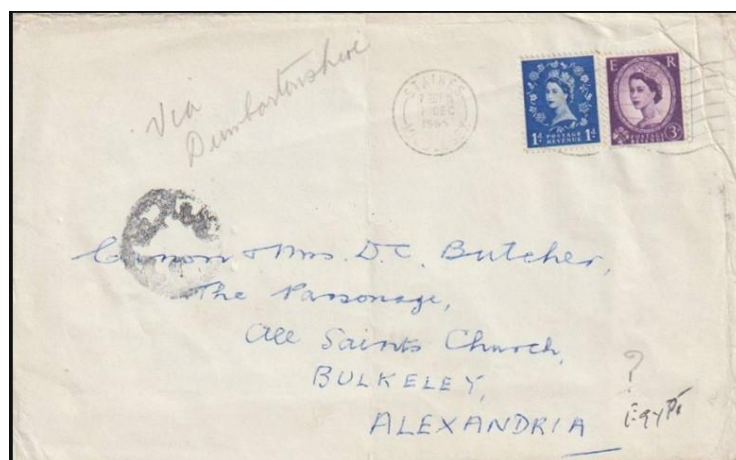 Via
Dumbartonshire
STAINES
DEC
1965
1D 1D
POSTAGE
REVENUE
E R
3D
Canon & Mrs. D.C. Butcher,
The Parsonage,
All Saints Church,
BULKELEY,
ALEXANDRIA
?
Egypt